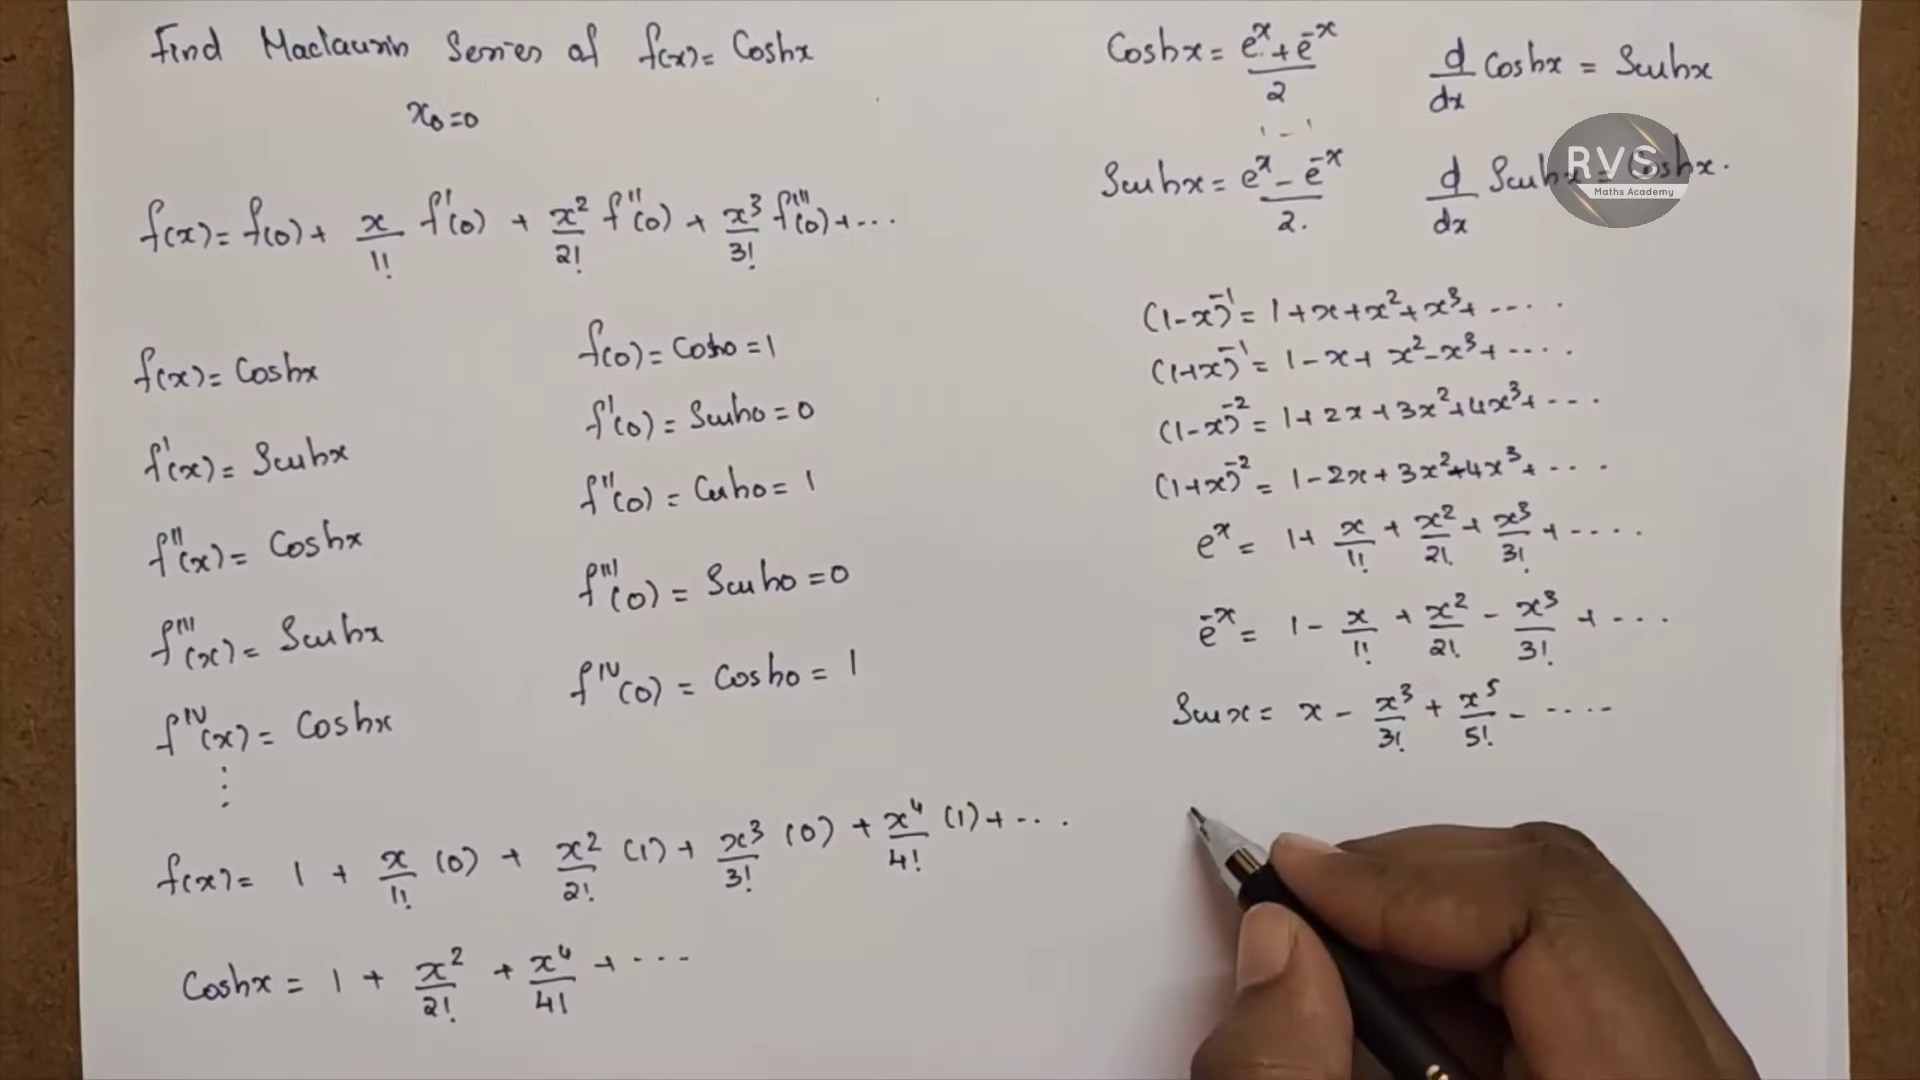 Find Maclaurin Series of f(x) = Coshx
x₀=0
f(x) = f(0) + x/1! f'(0) + x²/2! f''(0) + x³/3! f'''(0) + ...
f(x) = Coshx
f'(x) = Sinhx
f''(x) = Coshx
f'''(x) = Sinhx
f^IV(x) = Coshx
⋮
f(0) = Cosh0 = 1
f'(0) = Sinh0 = 0
f''(0) = Cosh0 = 1
f'''(0) = Sinh0 = 0
f^IV(0) = Cosh0 = 1
f(x) = 1 + x/1! (0) + x²/2! (1) + x³/3! (0) + x⁴/4! (1) + ...
Coshx = 1 + x²/2! + x⁴/4! + ...
Coshx = (e^x + e^-x)/2
d/dx Coshx = Sinhx
Sinhx = (e^x - e^-x)/2.
d/dx Sinhx = Coshx.
RVS
Maths Academy
(1-x)^-1 = 1 + x + x² + x³ + ....
(1+x)^-1 = 1 - x + x² - x³ + ....
(1-x)^-2 = 1 + 2x + 3x² + 4x³ + ...
(1+x)^-2 = 1 - 2x + 3x² - 4x³ + ....
e^x = 1 + x/1! + x²/2! + x³/3! + ....
e^-x = 1 - x/1! + x²/2! - x³/3! + ...
Sinx = x - x³/3! + x⁵/5! - ....